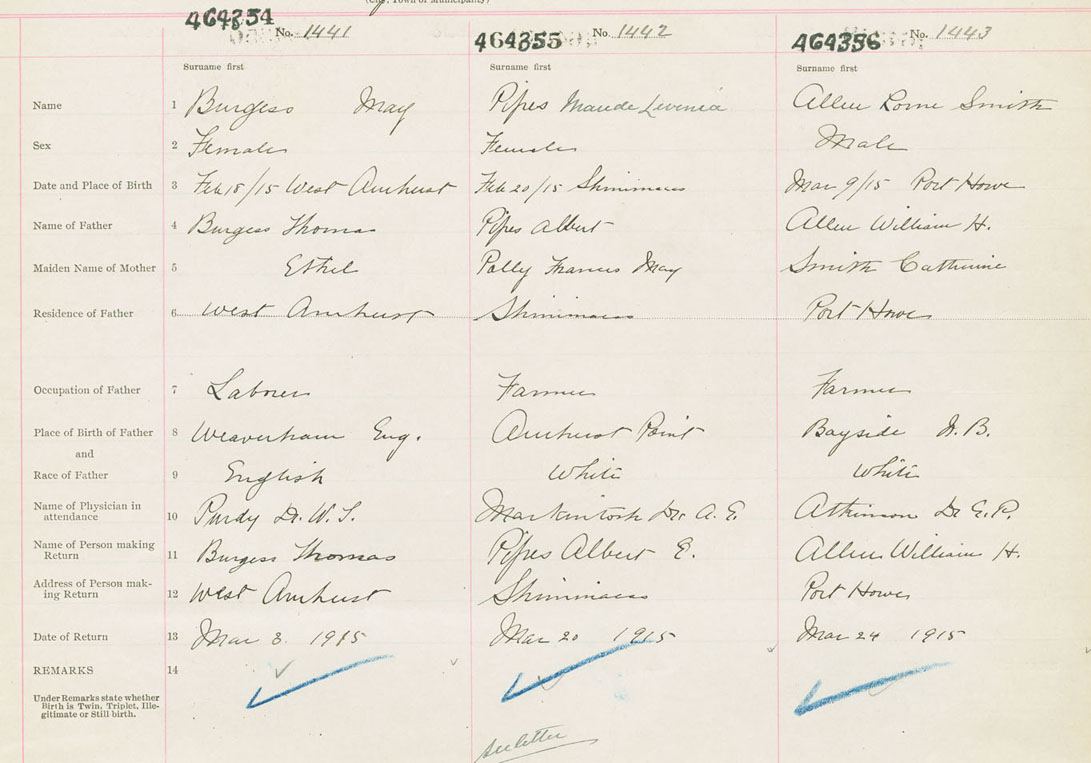 (City, Town or Municipality)
464354 464355 464356
No. 1441 No. 1442 No. 1443
Surname first Surname first Surname first
Name 1 Burgess May Pipes Maude Levinia Allen Lorne Smith
Sex 2 Female Female Male
Date and Place of Birth 3 Feb 18/15 West Amherst Feb 20/15 Shinimacas Mar 9/15 Port Howe
Name of Father 4 Burgess Thomas Pipes Albert Allen William H.
Maiden Name of Mother 5 Ethel Polly Frances May Smith Catherine
Residence of Father 6 West Amherst Shinimacas Port Howe
Occupation of Father 7 Laborer Farmer Farmer
Place of Birth of Father 8 Weaverham Eng. Amherst Point Bayside N.B.
and
Race of Father 9 English White White
Name of Physician in
attendance 10 Purdy Dr. W. T. Mackintosh Dr. A. E. Atkinson Dr E. P.
Name of Person making
Return 11 Burgess Thomas Pipes Albert E. Allen William H.
Address of Person mak-
ing Return 12 West Amherst Shinimacas Port Howe
Date of Return 13 Mar 8 1915 Mar 20 1915 Mar 24 1915
REMARKS 14
Under Remarks state whether
Birth is Twin, Triplet, Ille-
gitimate or Still birth.
see letter